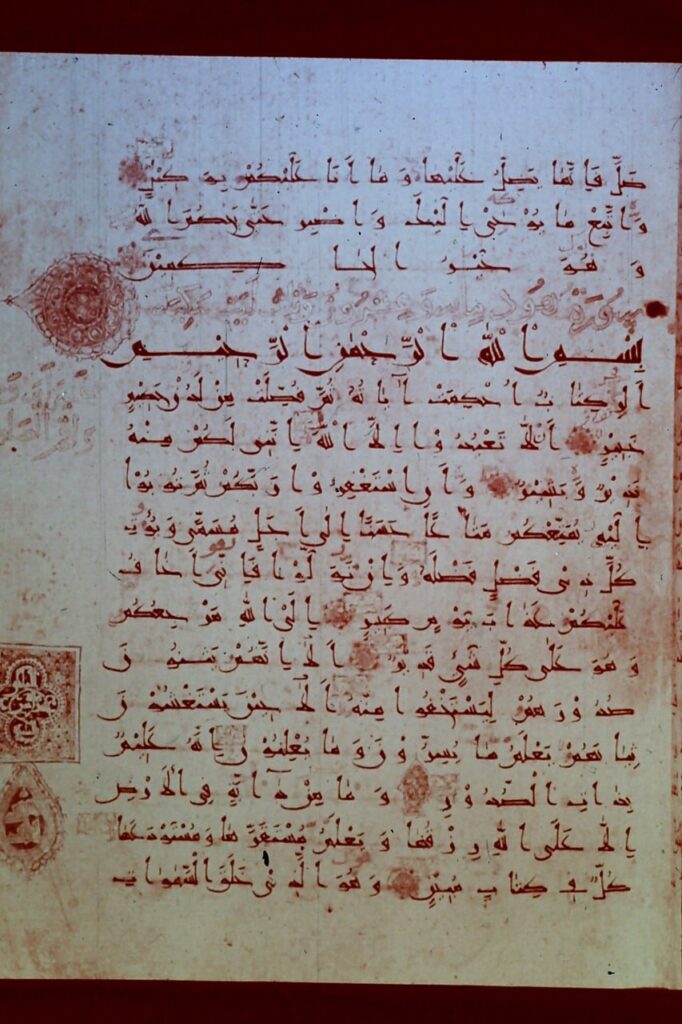 ضل فإنما يضل عليها وما أنا عليكم بوكيل
واتبع ما يوحى إليك واصبر حتى يحكم الله
وهو خير الحاكمين
سورة هود مائة وعشرون
بسم الله الرحمن الرحيم
الر كتاب أحكمت آياته ثم فصلت من لدن حكيم
خبير ألا تعبدوا إلا الله إنني لكم منه
نذير وبشير وأن استغفروا ربكم ثم توبوا
إليه يمتعكم متاعا حسنا إلى أجل مسمى ويؤت
كل ذي فضل فضله وإن تولوا فإني أخاف
عليكم عذاب يوم كبير إلى الله مرجعكم
وهو على كل شيء قدير ألا إنهم يثنون
صدورهم ليستخفوا منه ألا حين يستغشون
ثيابهم يعلم ما يسرون وما يعلنون إنه عليم
بذات الصدور وما من دابة في الأرض
إلا على الله رزقها ويعلم مستقرها ومستودعها
كل في كتاب مبين وهو الذي خلق السموات